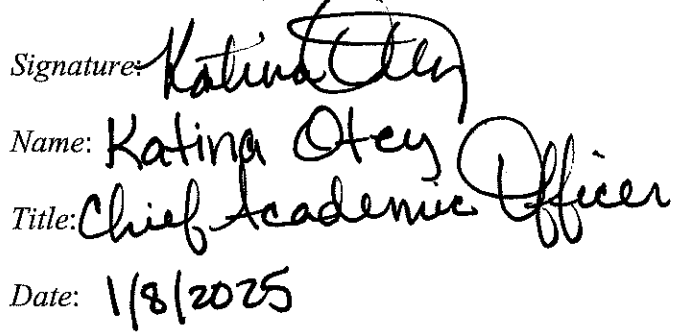 Signature: Katina Otey
Name: Katina Otey
Title: Chief Academic Officer
Date: 1/8/2025